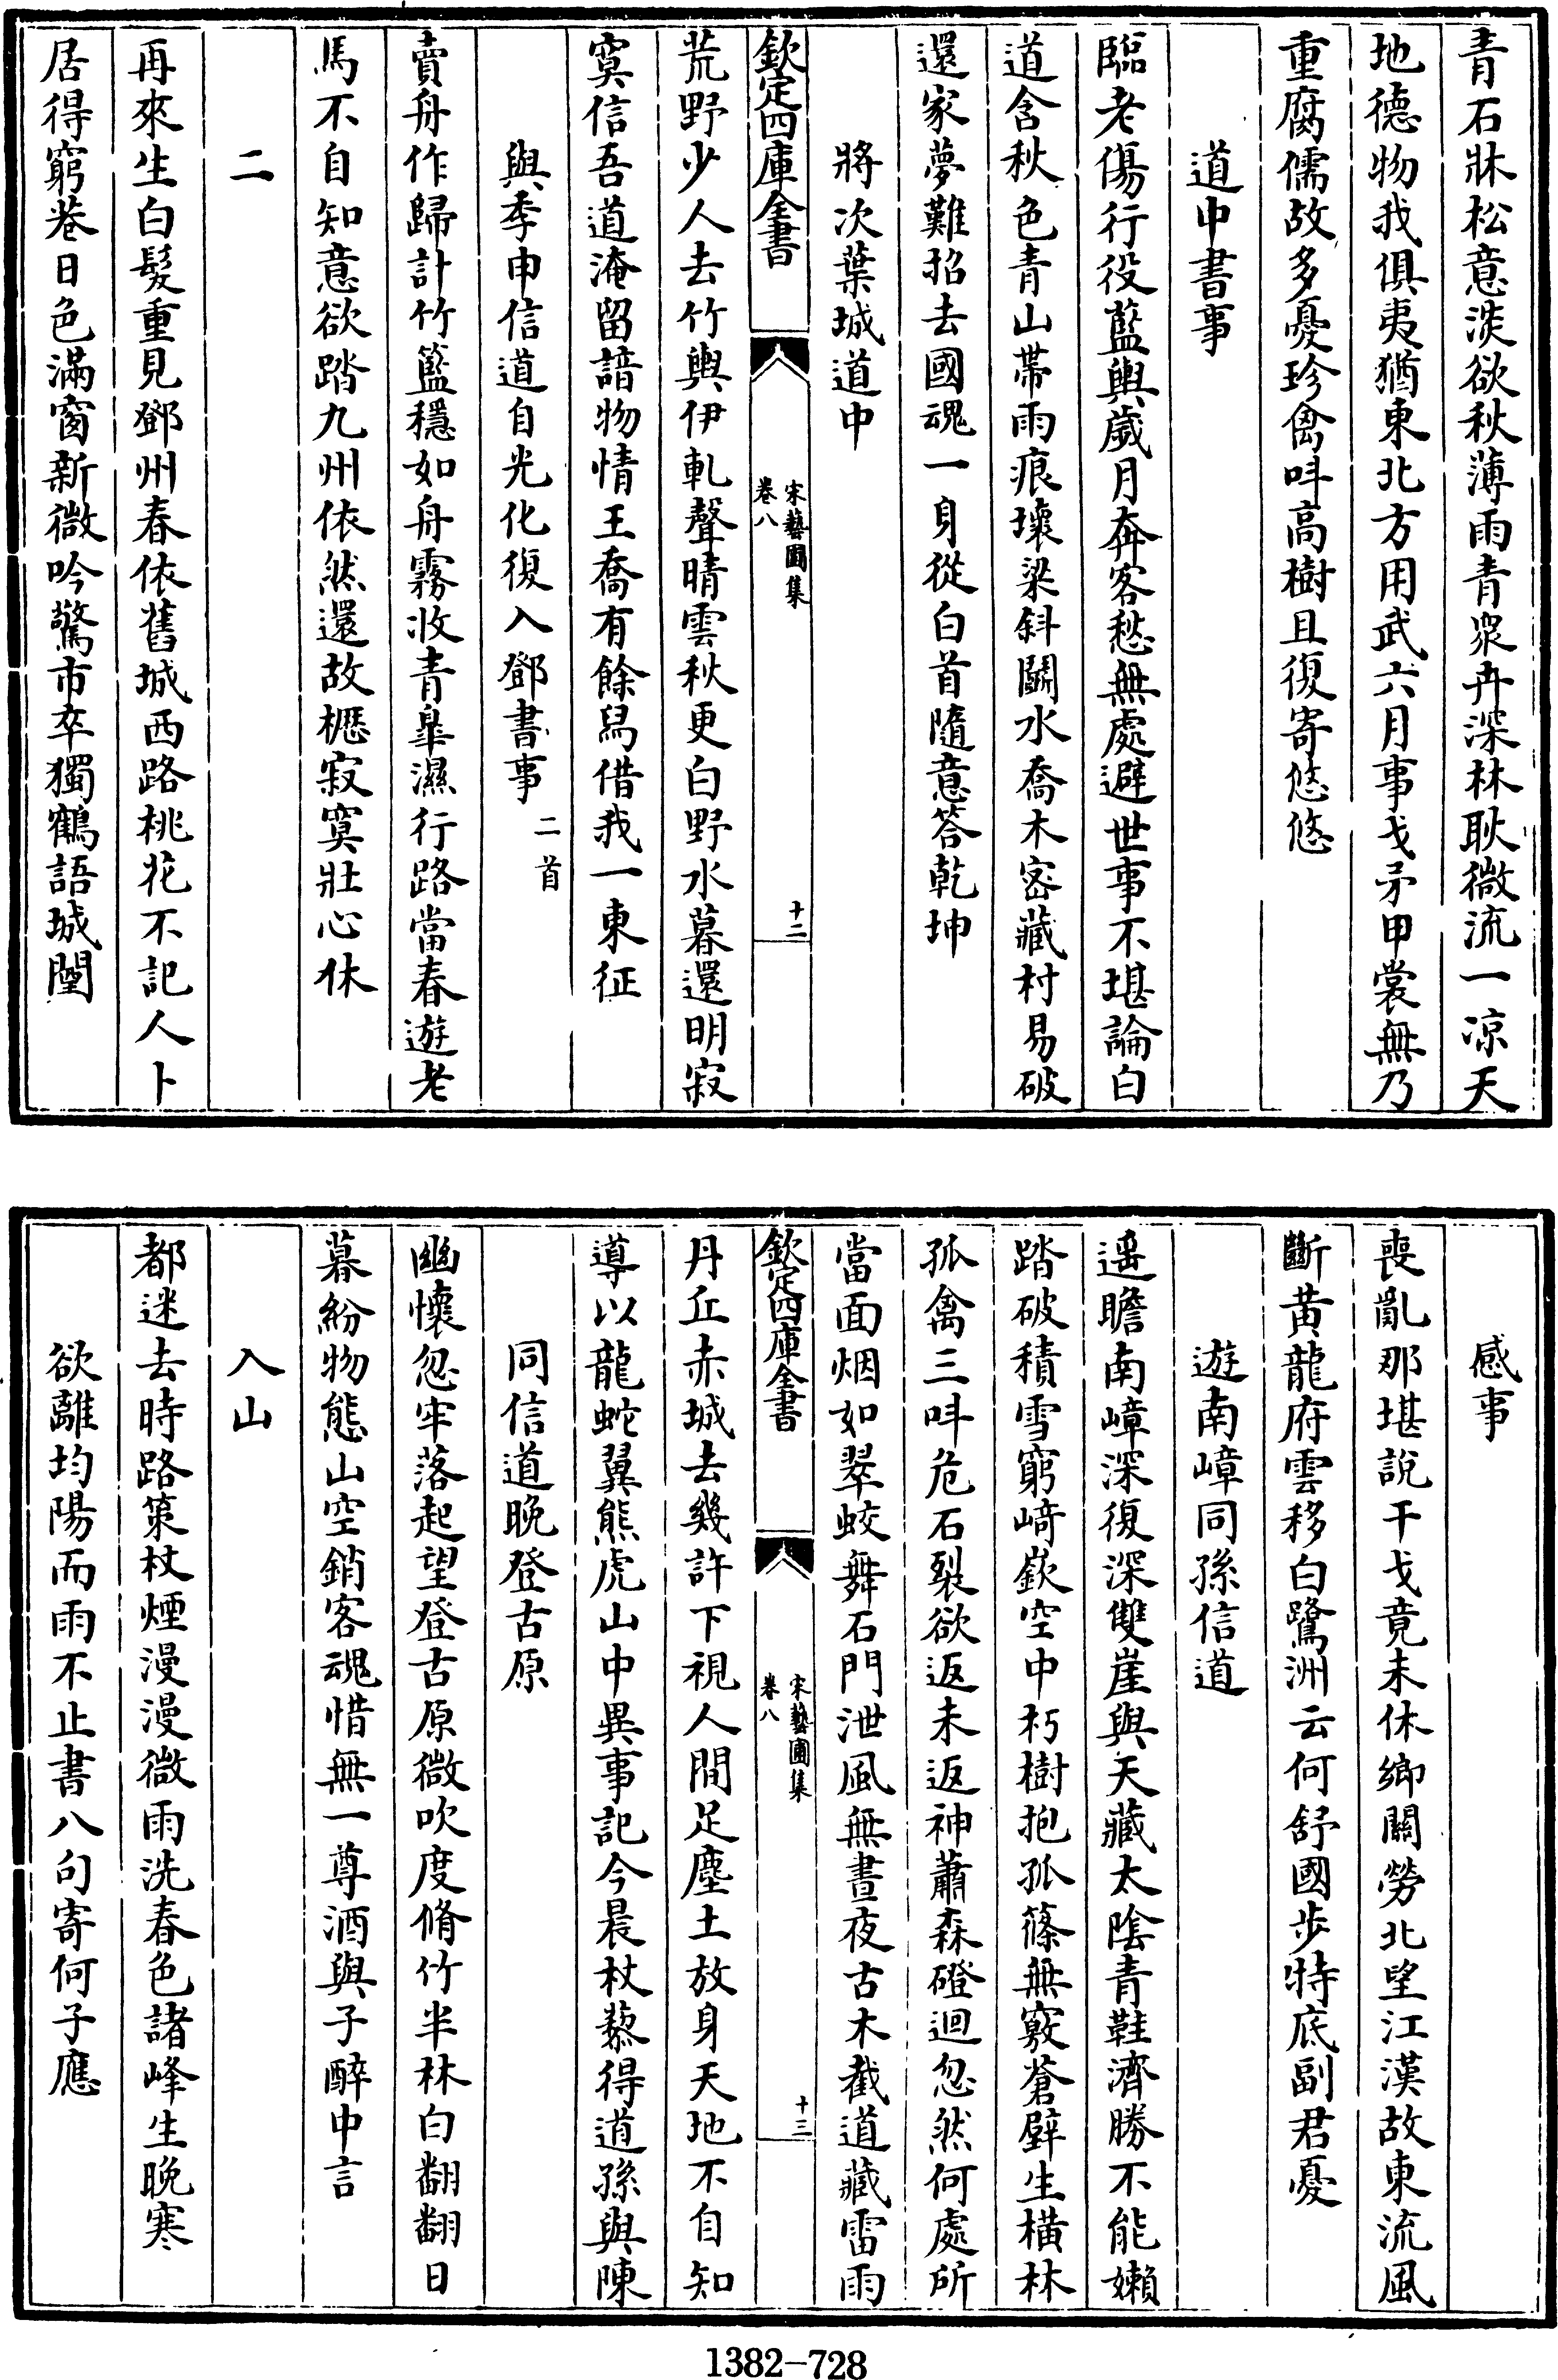 青石牀松意淡欲秋薄雨青眾卉深林耿微流一凉天
地德物我俱夷猶東北方用武六月事戈矛甲裳無乃
重腐儒故多憂珍禽呌高樹且復寄悠悠
道中書事
臨老傷行役籃輿歲月奔客愁無處避世事不堪論白
道含秋色青山帶雨痕壞梁斜鬬水喬木密藏村易破
還家夢難招去國魂一身從白首隨意答乾坤
將次葉城道中
欽定四庫全書
宋藝圃集
卷八
十二
荒野少人去竹輿伊軋聲晴雲秋更白野水暮還明寂
寞信吾道淹留諳物情王喬有餘舄借我一東征
與季申信道自光化復入鄧書事二首
賣舟作歸計竹籃穩如舟霧收青臯濕行路當春遊老
馬不自知意欲踏九州依然還故櫪寂寞壯心休
二
再來生白髮重見鄧州春依舊城西路桃花不記人卜
居得窮巷日色滿窗新微吟驚市卒獨鶴語城闉
感事
喪亂那堪說干戈竟未休鄉關勞北望江漢故東流風
斷黄龍府雲移白鷺洲云何舒國步特底副君憂
遊南嶂同孫信道
遥瞻南嶂深復深雙崖與天藏太隂青鞋濟勝不能嬾
踏破積雪窮崎嶔空中朽樹抱孤篠無竅蒼壁生橫林
孤禽三呌危石裂欲返未返神蕭森磴迴忽然何處所
當面烟如翠蛟舞石門泄風無晝夜古木截道藏雷雨
欽定四庫全書
宋藝圃集
卷八
十三
丹丘赤城去幾許下視人間足塵土放身天地不自知
導以龍蛇翼熊虎山中異事記今晨杖藜得道孫與陳
同信道晚登古原
幽懷忽牢落起望登古原微吹度脩竹半林白翻翻日
暮紛物態山空銷客魂惜無一尊酒與子醉中言
入山
都迷去時路策杖煙漫漫微雨洗春色諸峰生晚寒
欲離均陽而雨不止書八句寄何子應
1382-728